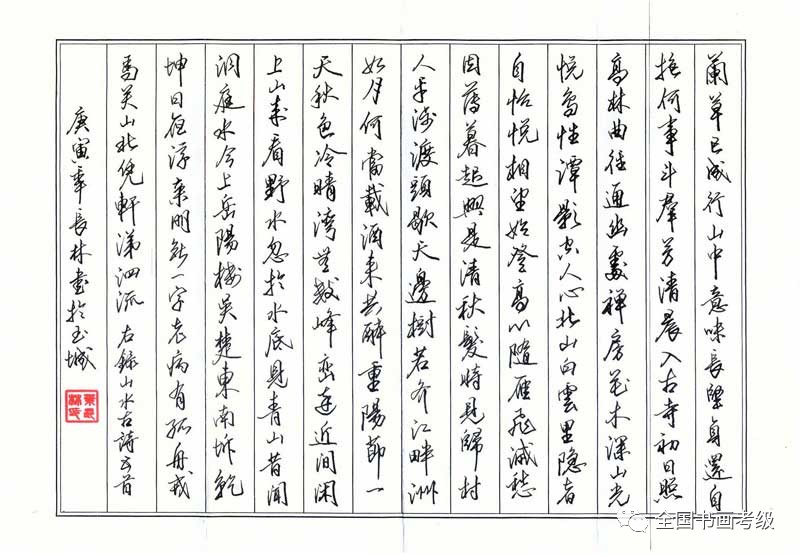 蘭草已成行山中意味長堅貞還自
抱何事斗群芳清晨入古寺初日照
高林曲径通幽處禅房花木深山光
悦鸟性潭影空人心北山白雲里隐者
自怡悦相望始登高心随雁飛滅愁
因薄暮起興是清秋發時見歸村
人平沙渡頭歇天邊樹若齐江畔洲
如月何當載酒来共醉重陽節一
天秋色冷晴湾無數峰巒遠近間闲
上山来看野水忽於水底見青山昔闻
洞庭水今上岳陽楼吴楚東南坼乾
坤日夜浮亲朋無一字老病有孤舟戎
馬关山北凭軒涕泗流 右録山水古詩五首
庚寅年長林書於玉城
全国书画考级